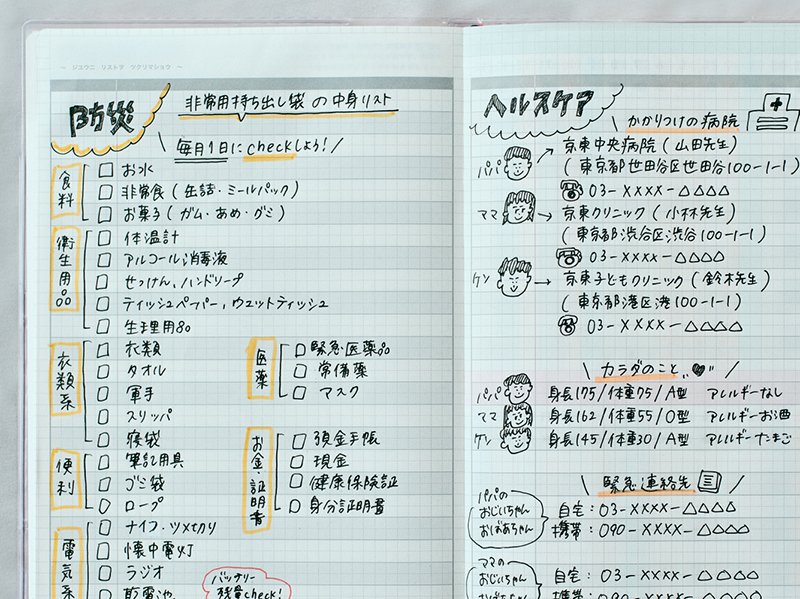 ～ ジユウニ リストヲ ツクリマショウ ～
防災
非常用持ち出し袋の中身リスト
毎月1日にcheckしよう!
食料
お水
非常食(缶詰・ミールパック)
お菓子(ガム・あめ・グミ)
衛生用品
体温計
アルコール消毒液
せっけん、ハンドソープ
ティッシュペーパー、ウエットティッシュ
生理用品
衣類系
衣類
タオル
軍手
スリッパ
寝袋
便利
筆記用具
ゴミ袋
ロープ
電気系
ナイフ・ツメきり
懐中電灯
ラジオ
乾電池
バッテリー
残量check!
医薬
緊急医薬品
常備薬
マスク
お金・証明書
預金手帳
現金
健康保険証
身分証明書
ヘルスケア
かかりつけの病院
パパ
京東中央病院(山田先生)
(東京都世田谷区世田谷100-1-1)
03-XXXX-△△△△
ママ
京東クリニック(小林先生)
(東京都渋谷区渋谷100-1-1)
03-XXXX-△△△△
ケン
京東子どもクリニック(鈴木先生)
(東京都港区港100-1-1)
03-XXXX-△△△△
カラダのこと
パパ 身長175/体重75/A型 アレルギーなし
ママ 身長162/体重55/O型 アレルギーお酒
ケン 身長145/体重30/A型 アレルギーたまご
緊急連絡先
パパの
おじいちゃん
おばあちゃん
自宅:03-XXXX-△△△△
携帯:090-XXXX-△△△△
ママの
おじいちゃん
おばあちゃん
自宅:03-XXXX-△△△△
携帯:090-XXXX-△△△△